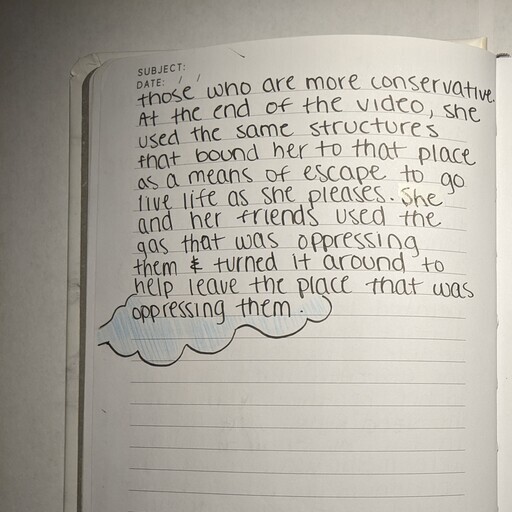 SUBJECT:
DATE: / /
those who are more conservative.
At the end of the video, she
used the same structures
that bound her to that place
as a means of escape to go
live life as she pleases. She
and her friends used the
gas that was oppressing
them & turned it around to
help leave the place that was
oppressing them.